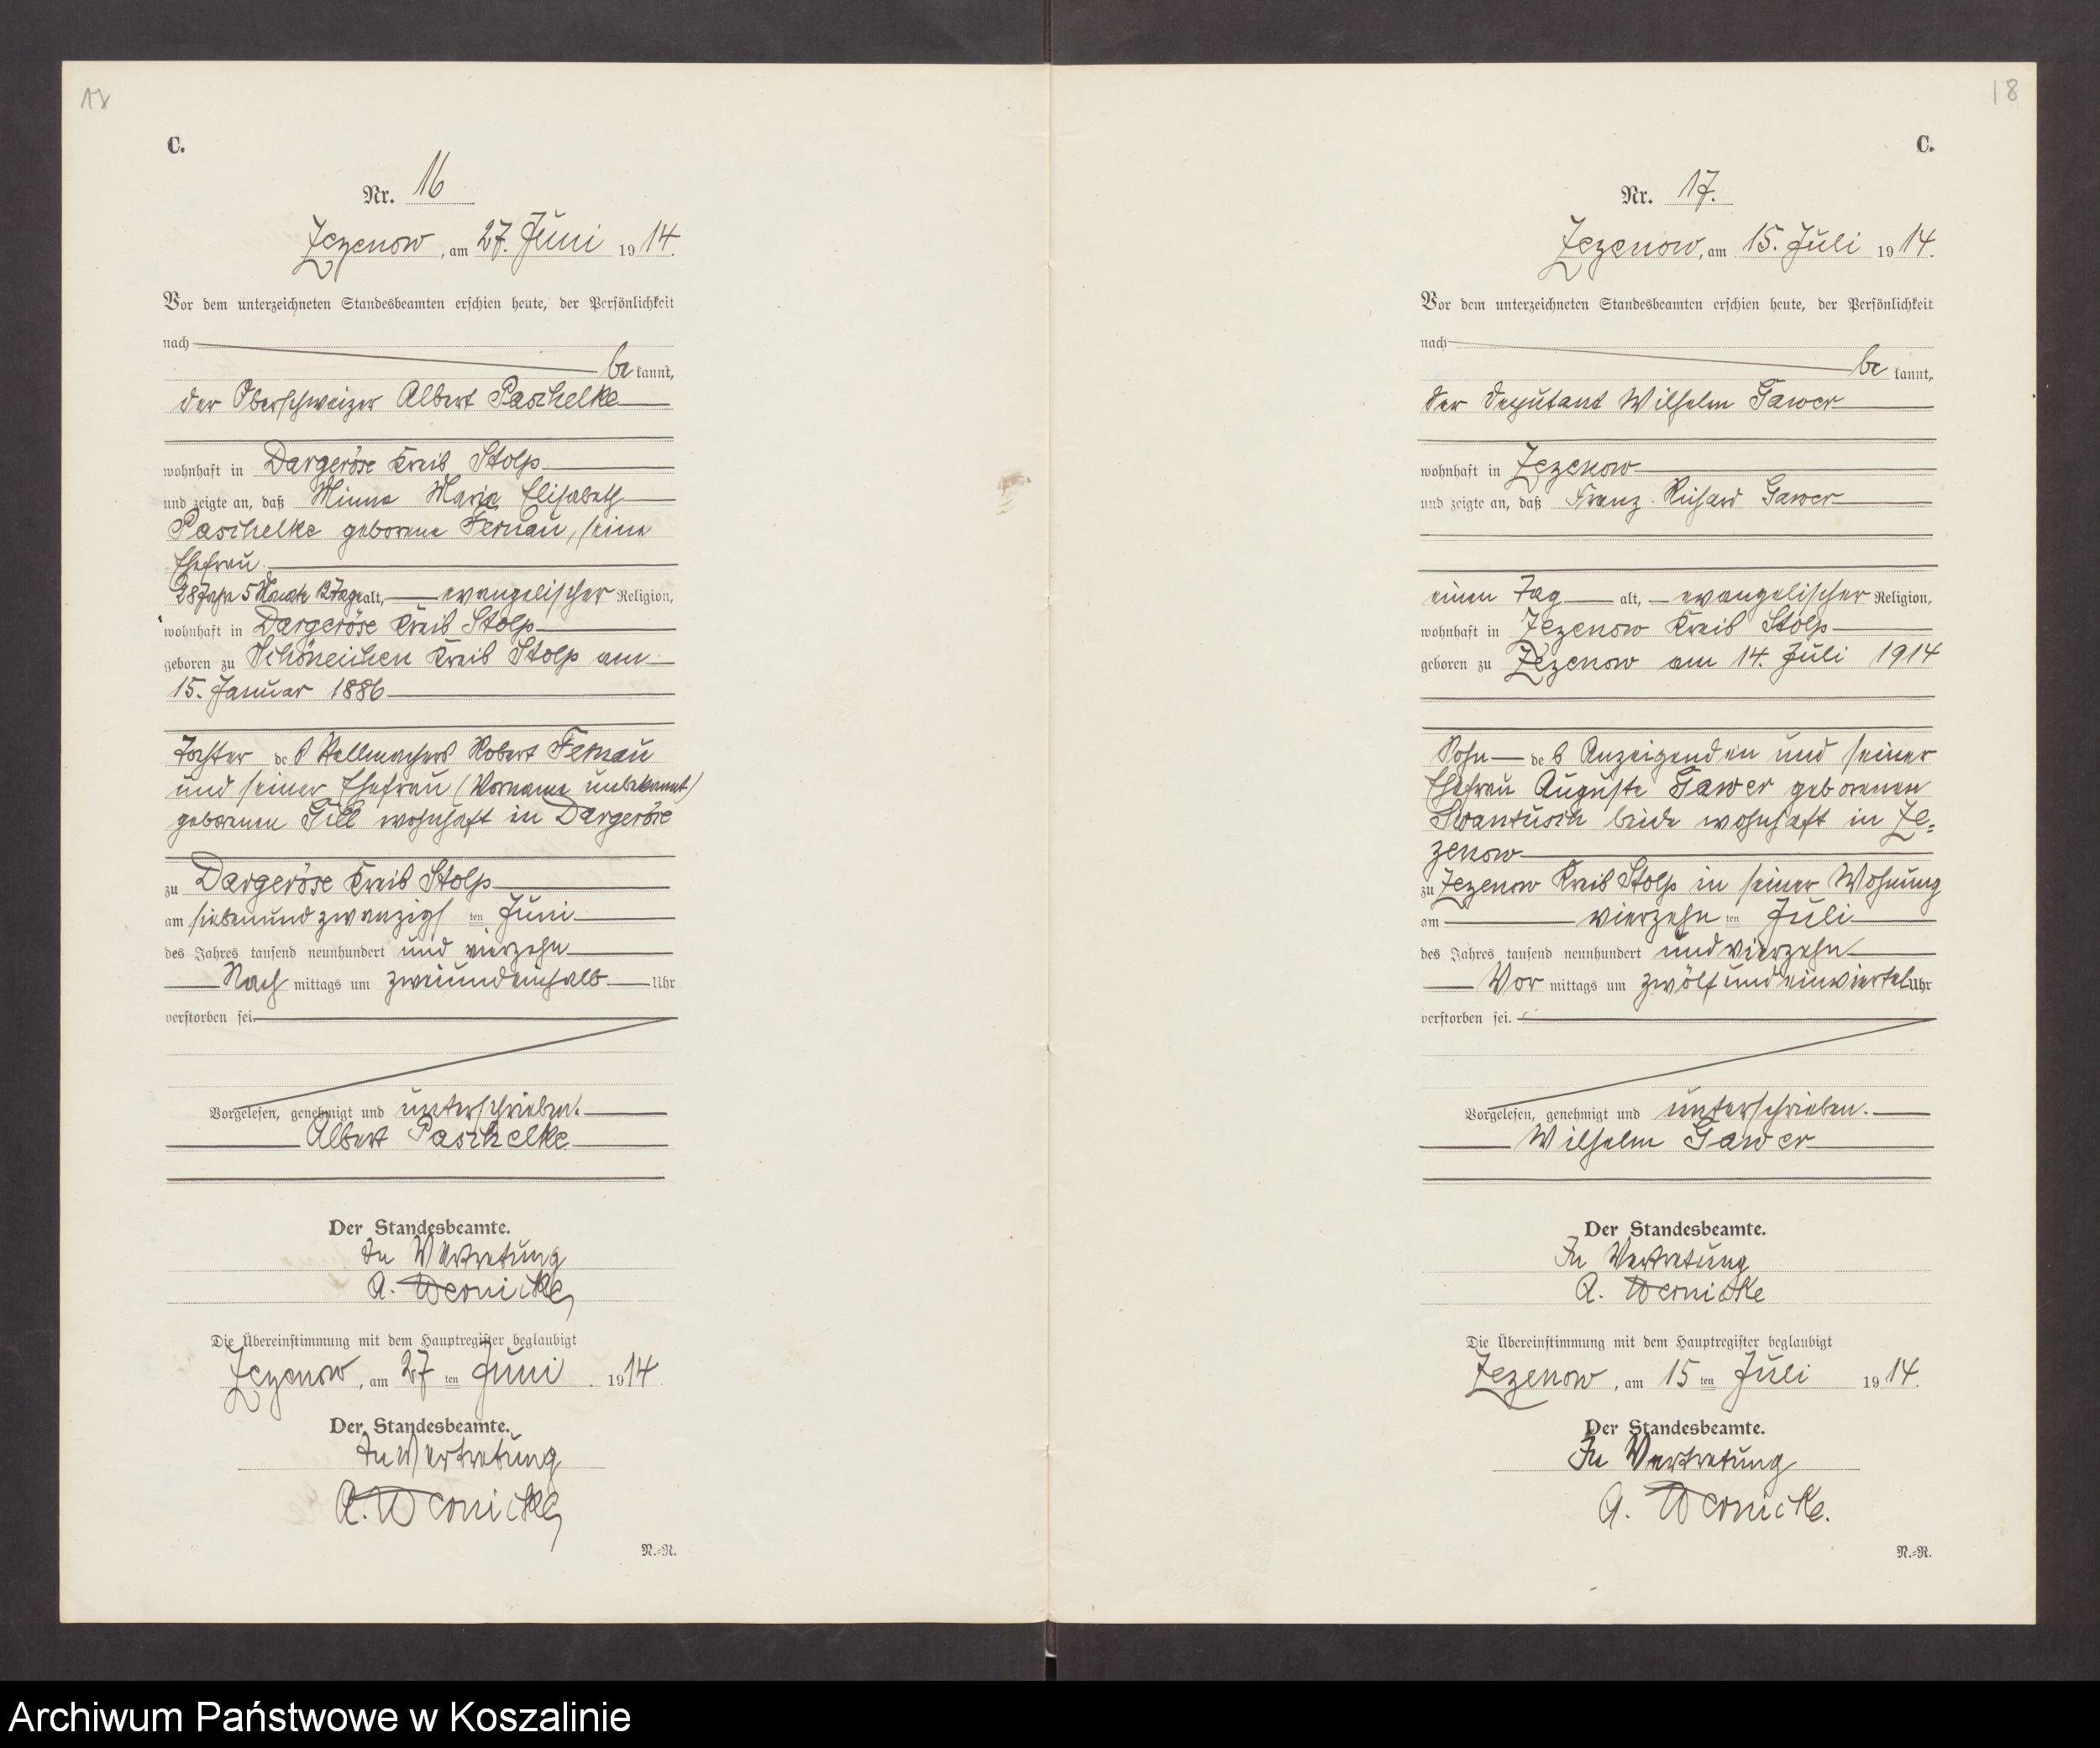 17
C.
Nr. 16
Zezenow, am 27. Juni 1914.
Vor dem unterzeichneten Standesbeamten erschien heute, der Persönlichkeit
nach
be kannt,
der Oberschweizer Albert Paschelke
wohnhaft in Dargeröse Kreis Stolp
und zeigte an, daß Minna Maria Elisabeth
Paschelke geborene Fernau, seine
Ehefrau
28 Jahre 5 Monate 12 Tage alt, evangelischer Religion,
wohnhaft in Dargeröse Kreis Stolp
geboren zu Schöneichen Kreis Stolp am
15. Januar 1886
Tochter des Stellmachers Robert Fernau
und seiner Ehefrau (Vorname unbekannt)
geborenen Till wohnhaft in Dargeröse
zu Dargeröse Kreis Stolp
am siebenundzwanzigsten Juni
des Jahres tausend neunhundert und vierzehn
Nach mittags um zweiundeinhalb Uhr
verstorben sei.
Vorgelesen, genehmigt und unterschrieben.
Albert Paschelke
Der Standesbeamte.
In Vertretung
A. Wernicke
Die Übereinstimmung mit dem Hauptregister beglaubigt
Zezenow, am 27 ten Juni 1914
Der Standesbeamte.
In Vertretung
A. Wernicke
N.=R.
18
C.
Nr. 17.
Zezenow, am 15. Juli 1914.
Vor dem unterzeichneten Standesbeamten erschien heute, der Persönlichkeit
nach
be kannt,
der Deputant Wilhelm Gawer
wohnhaft in Zezenow
und zeigte an, daß Franz Richard Gawer
einen Tag alt, evangelischer Religion,
wohnhaft in Zezenow Kreis Stolp
geboren zu Zezenow am 14. Juli 1914
Sohn des Anzeigenden und seiner
Ehefrau Auguste Gawer geborenen
Swantusch beide wohnhaft in Ze=
zenow
zu Zezenow Kreis Stolp in seiner Wohnung
am vierzehn ten Juli
des Jahres tausend neunhundert und vierzehn
Vor mittags um zwölfundeinviertel Uhr
verstorben sei.
Vorgelesen, genehmigt und unterschrieben.
Wilhelm Gawer
Der Standesbeamte.
In Vertretung
A. Wernicke
Die Übereinstimmung mit dem Hauptregister beglaubigt
Zezenow, am 15 ten Juli 1914.
Der Standesbeamte.
In Vertretung
A. Wernicke.
N.=R.
Archiwum Państwowe w Koszalinie